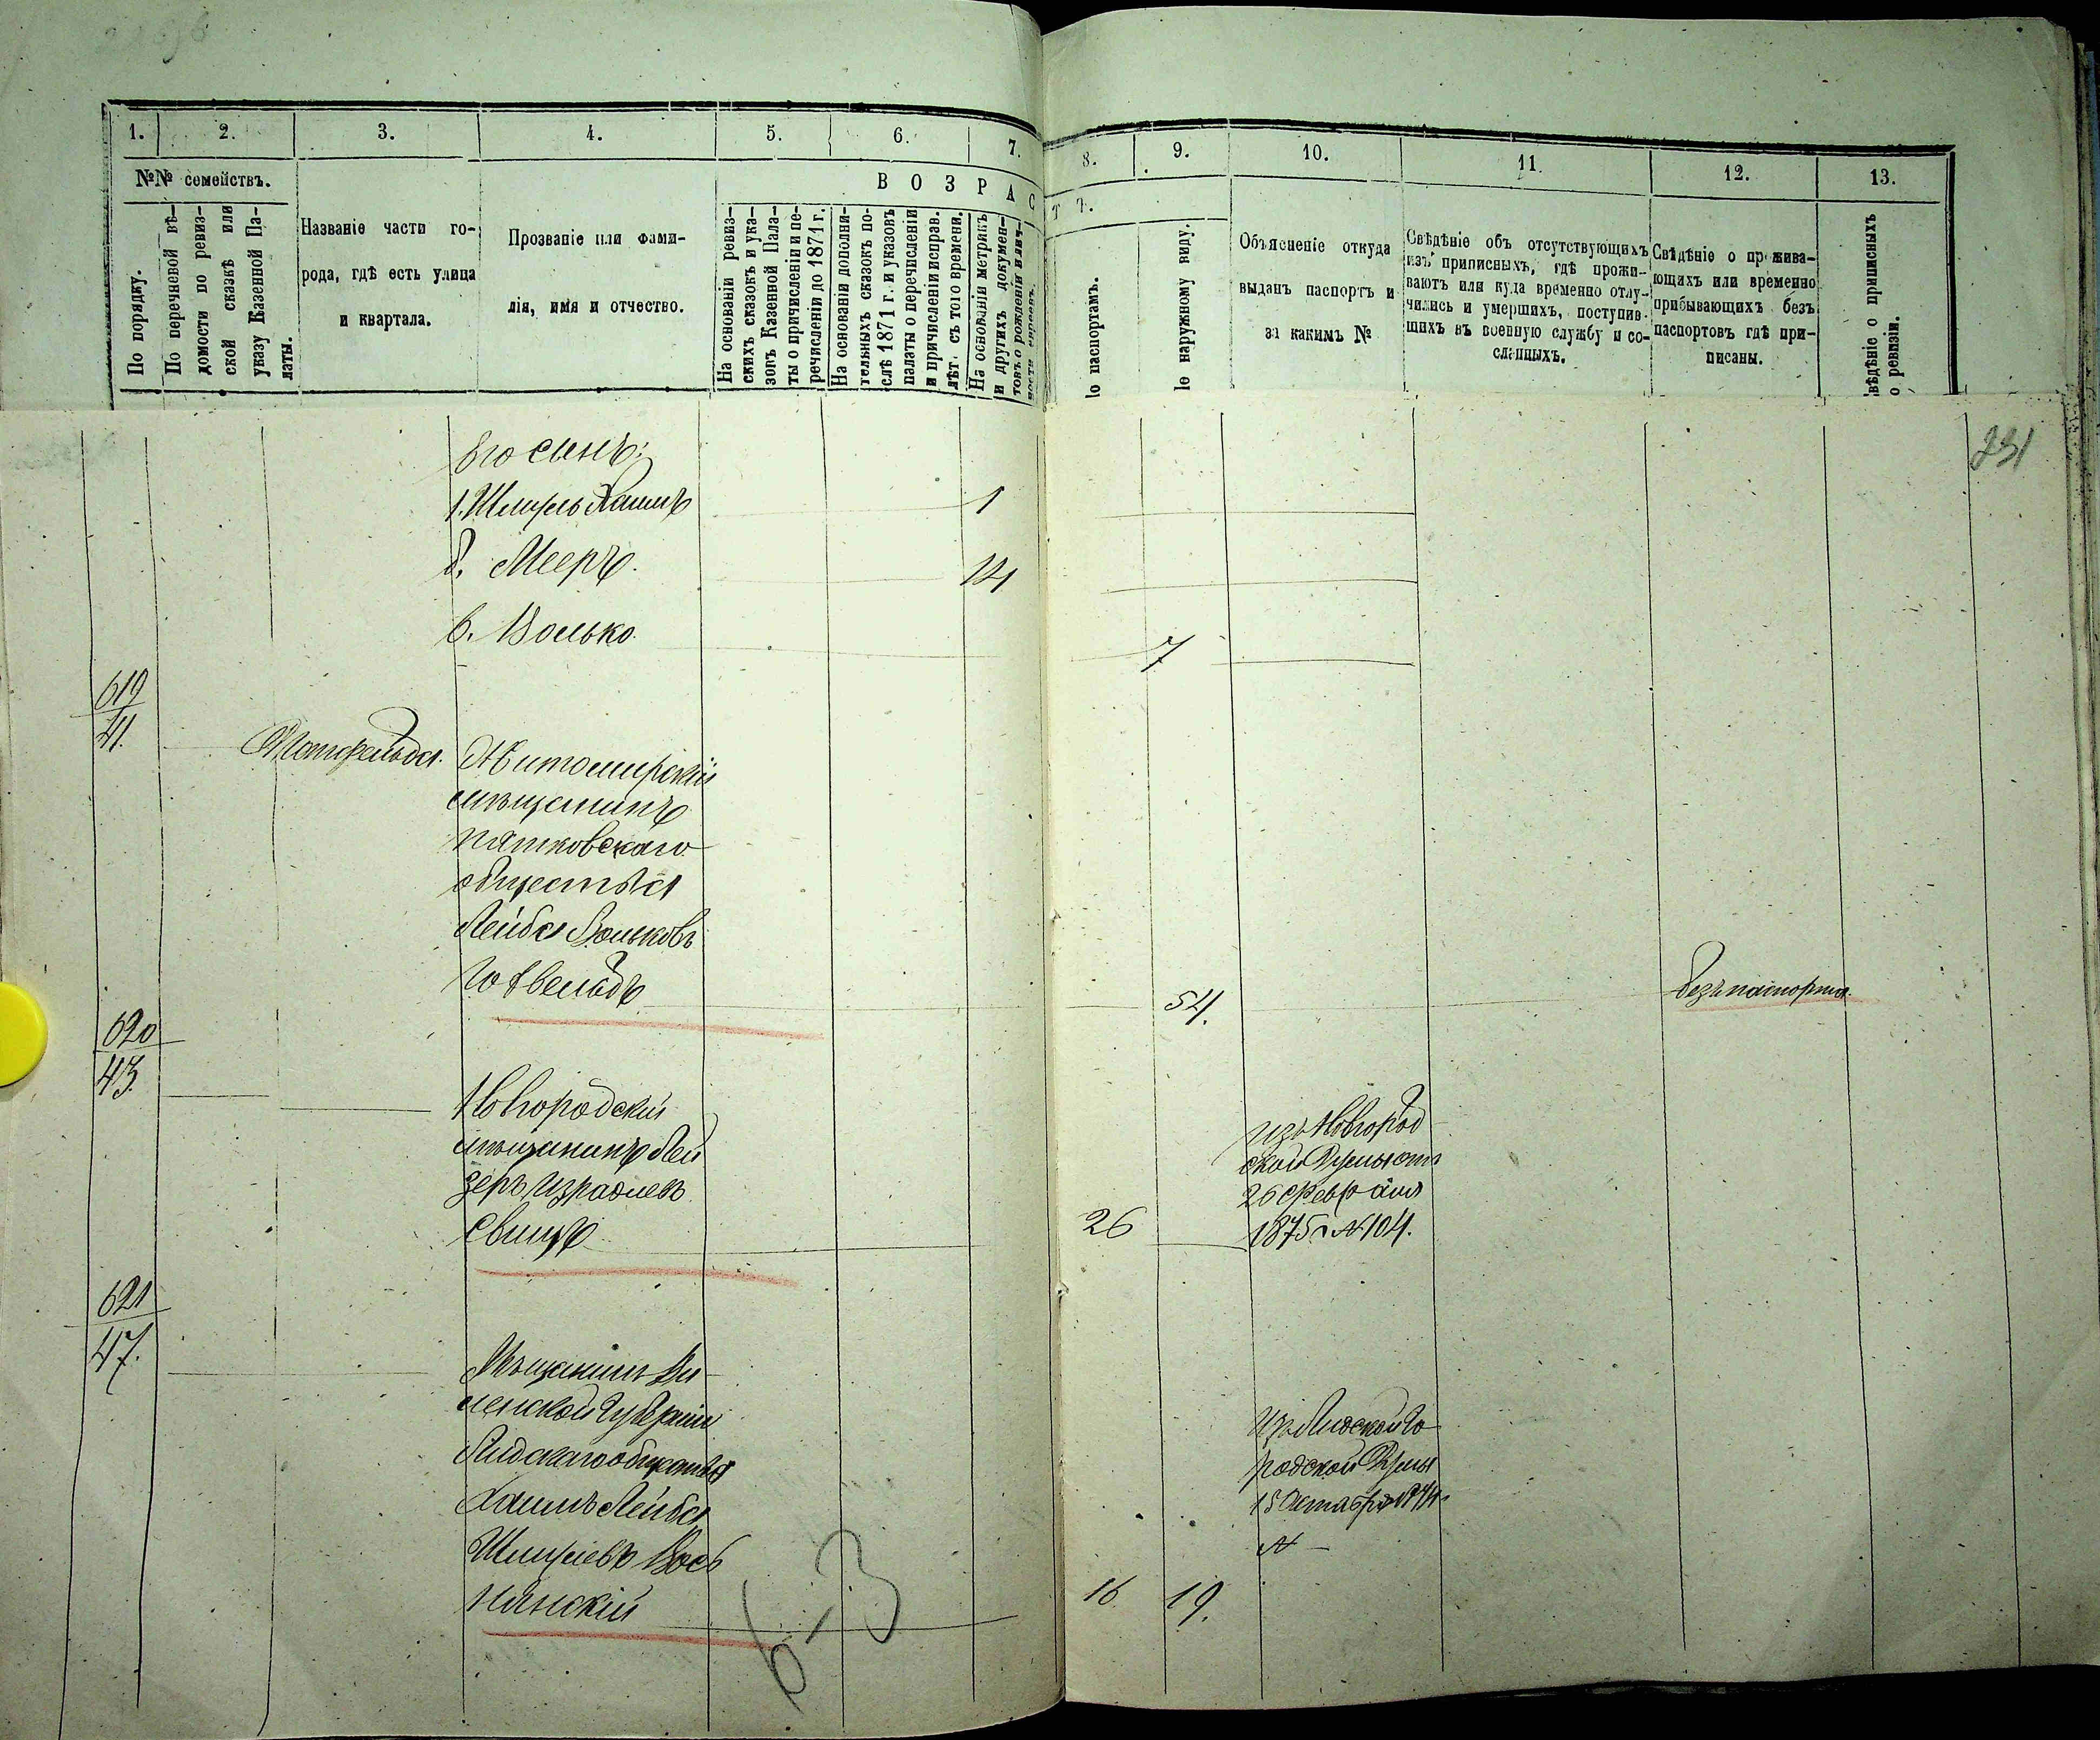 1.
2.
3.
4.
5.
6.
7.
8.
9.
10.
11.
12.
13.
№№ семействъ.
ВОЗРАСТЪ.
По порядку.
По перечневой вѣ-
домости по ревиз-
ской сказкѣ или
указу Казенной Па-
латы.
Названіе части го-
рода, гдѣ есть улица
и квартала.
Прозваніе или фами-
лія, имя и отчество.
На основаніи ревиз-
скихъ сказокъ и ука-
зовъ Казенной Пала-
ты о причисленіи и пе-
речисленіи до 1871 г.
На основаніи дополни-
тельныхъ сказокъ по-
слѣ 1871 г. и указовъ
палаты о перечисленіи
и причисленіи исправ.
лѣт. съ того времени.
На основаніи метрикъ
и другихъ докумен-
товъ о рожденіи
по паспортамъ.
по наружному виду.
Объясненіе откуда
выданъ паспортъ и
за какимъ №
Свѣдѣніе объ отсутствующихъ
изъ приписныхъ, гдѣ прожи-
ваютъ или куда временно отлу-
чились и умершихъ, поступив-
шихъ въ военную службу и со-
сланныхъ.
Свѣдѣніе о прожива-
ющихъ или временно
прибывающихъ безъ
паспортовъ гдѣ при-
писаны.
Свѣдѣніе о приписныхъ
по ревизіи.
231
Его сынъ:
1. Шмуль Хаимъ 1
2. Мееръ. 14
в. Волько. 7
619
41.
Житомирскій
мѣщанинъ
пятковскаго
общества
Лейба Вольковъ
Готвельдъ 54. безъ паспорта.
620
43.
Новгородскій
мѣщанинъ Лей
зеръ Израилевъ
26
изъ Новгород
ской Думы отъ
26 февраля
1875 г. № 104.
621
47.
Мѣщанинъ Ви
ленской Губерніи
Лидскаго общества
Хаимъ Лейба
Шмулевъ Вось
нянскій 16 19.
Изъ Лидской Го
родской Думы
15 Октября
№ —
6-3